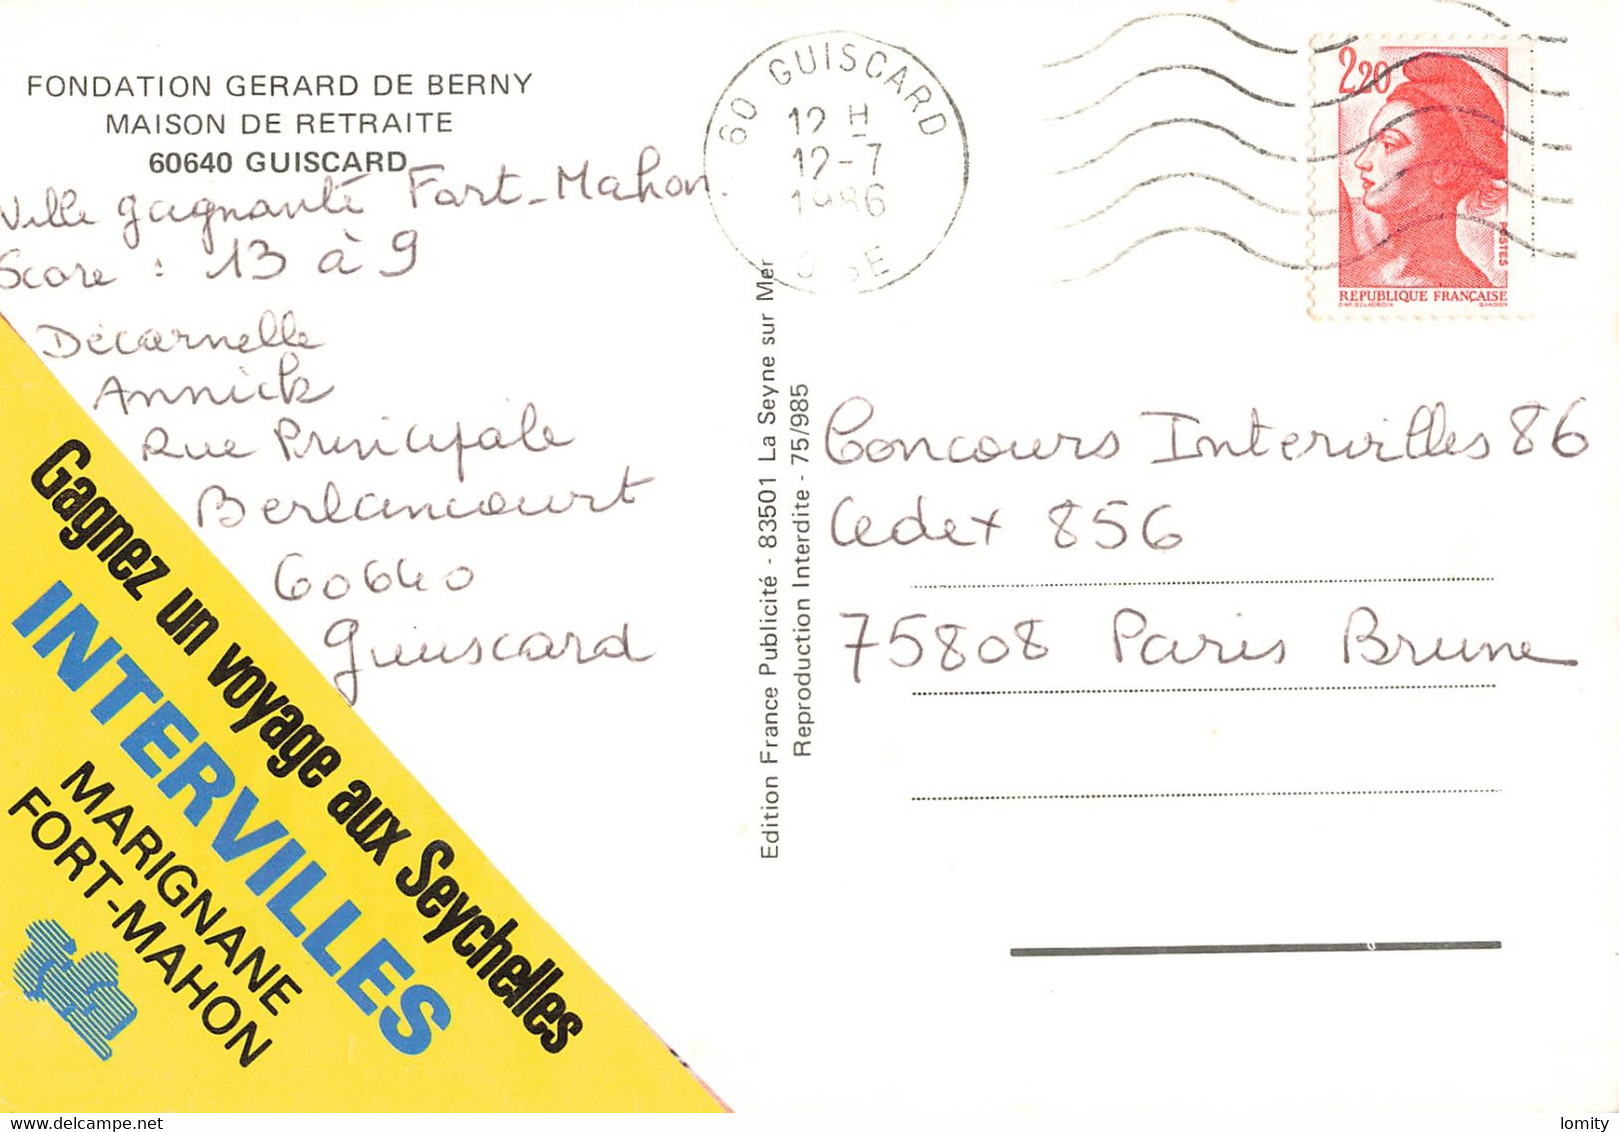 FONDATION GERARD DE BERNY
MAISON DE RETRAITE
60640 GUISCARD
Ville gagnante Fort-Mahon.
Score : 13 à 9
Décarnelle
Annick
Rue Principale
Berlancourt
60640
Guiscard
Gagnez un voyage aux Seychelles
INTERVILLES
MARIGNANE
FORT-MAHON
60 GUISCARD
12 H
12-7
1986
OISE
2,20
POSTES
REPUBLIQUE FRANÇAISE
D'AP. DELACROIX GANDON
Edition France Publicité - 83501 La Seyne sur Mer
Reproduction Interdite - 75/985
Concours Intervilles 86
Cedex 856
75808 Paris Brune
lomity